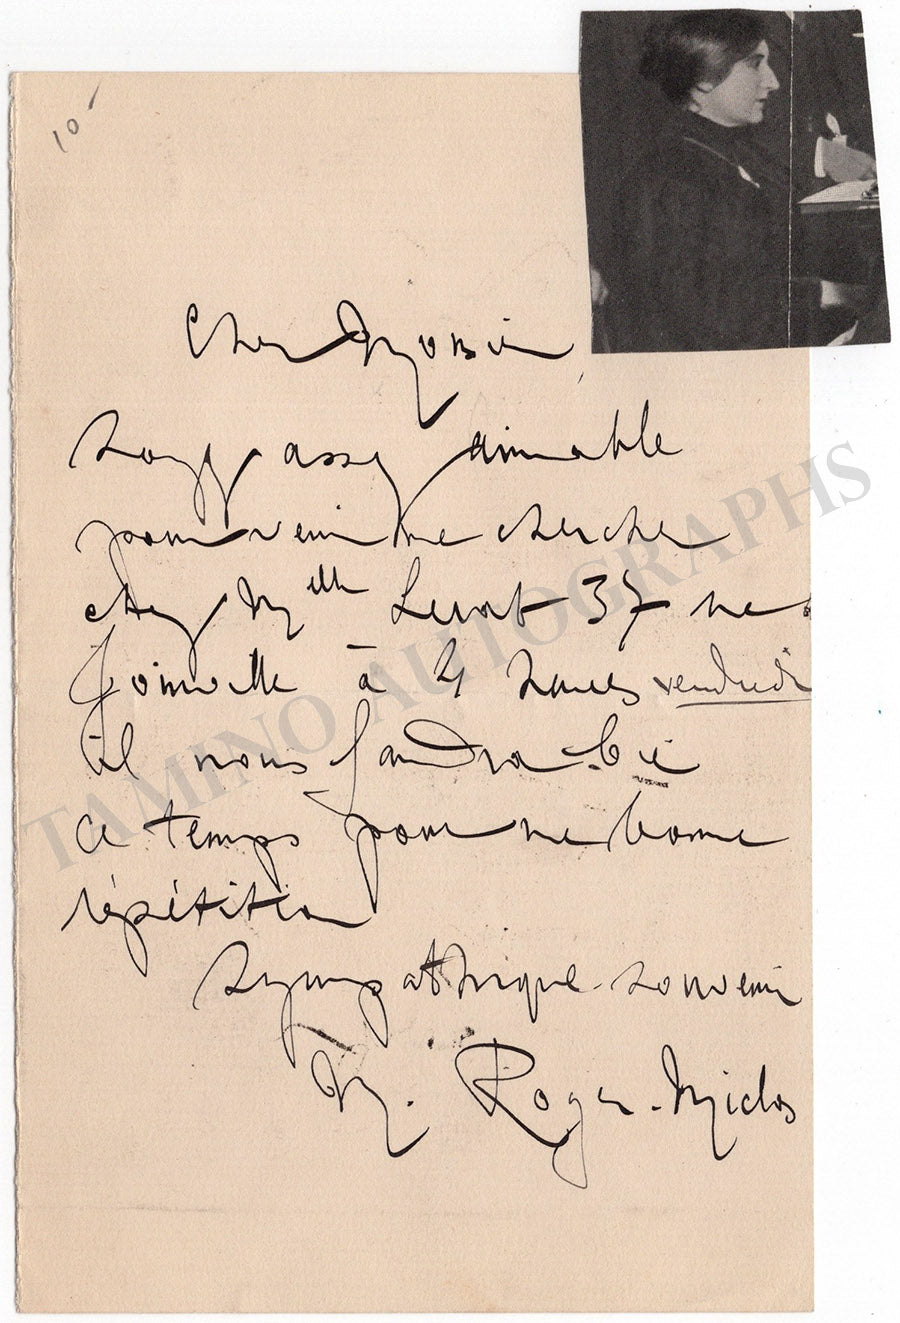 10
Cher Monsieur
Soyez assez aimable
pour venir me chercher
chez Mlle 37 rue
Joinville à 4 heures vendredi
il nous faudra bien
ce temps pour une bonne
répétition
Sympathique souvenir
M. Roger-Miclos
TAMINO AUTOGRAPHS